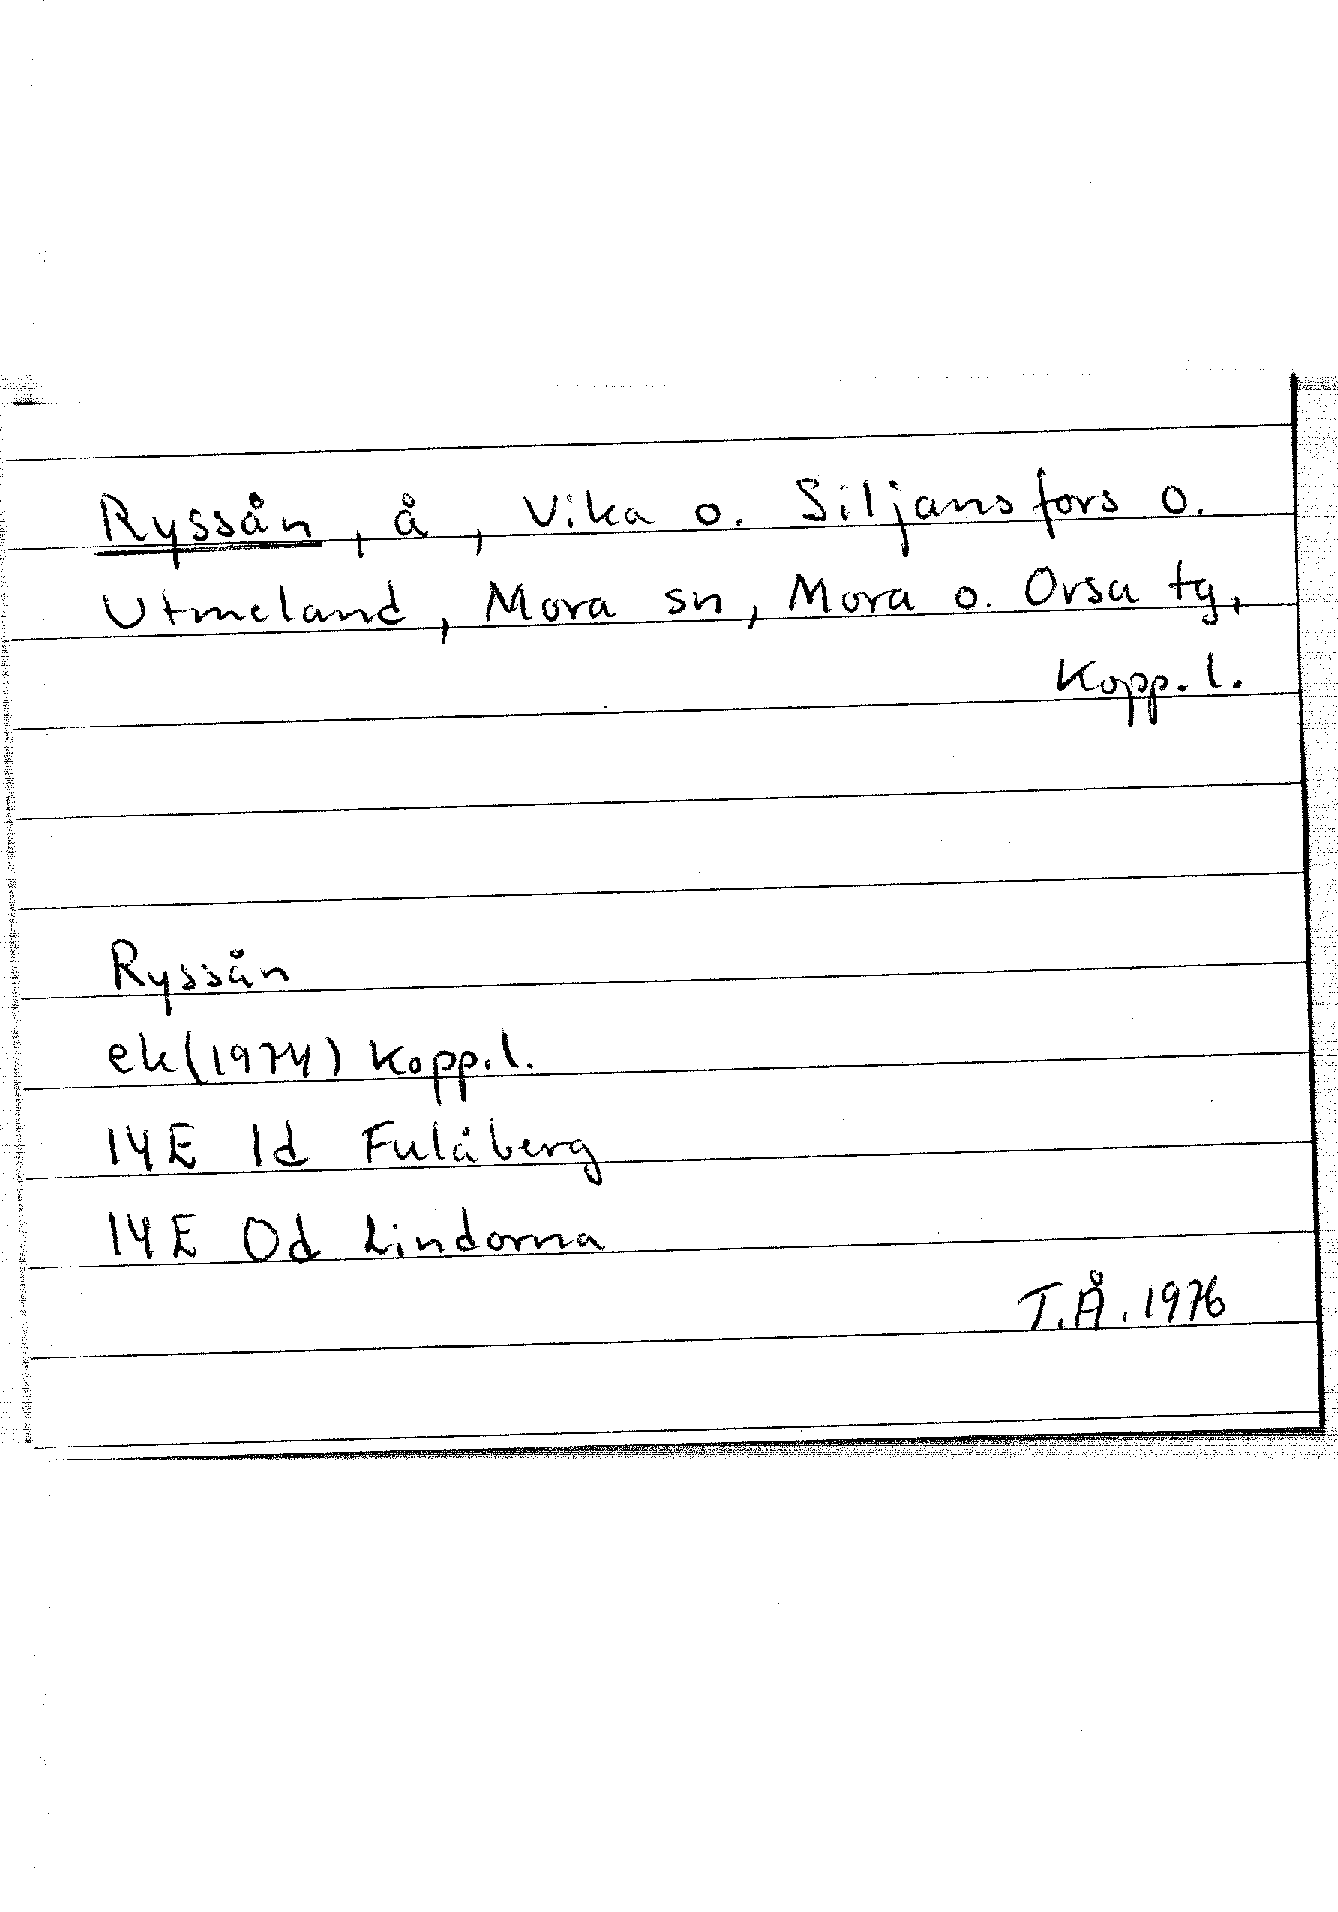 Ryssån, å, Vika o. Siljansfors o.
Utmeland, Mora sn, Mora o. Orsa tg,
Kopp. l.
Ryssån
ek (1974) Kopp. l.
14E 1d Fulåberg
14E 0d Lindorna
T.Å. 1976